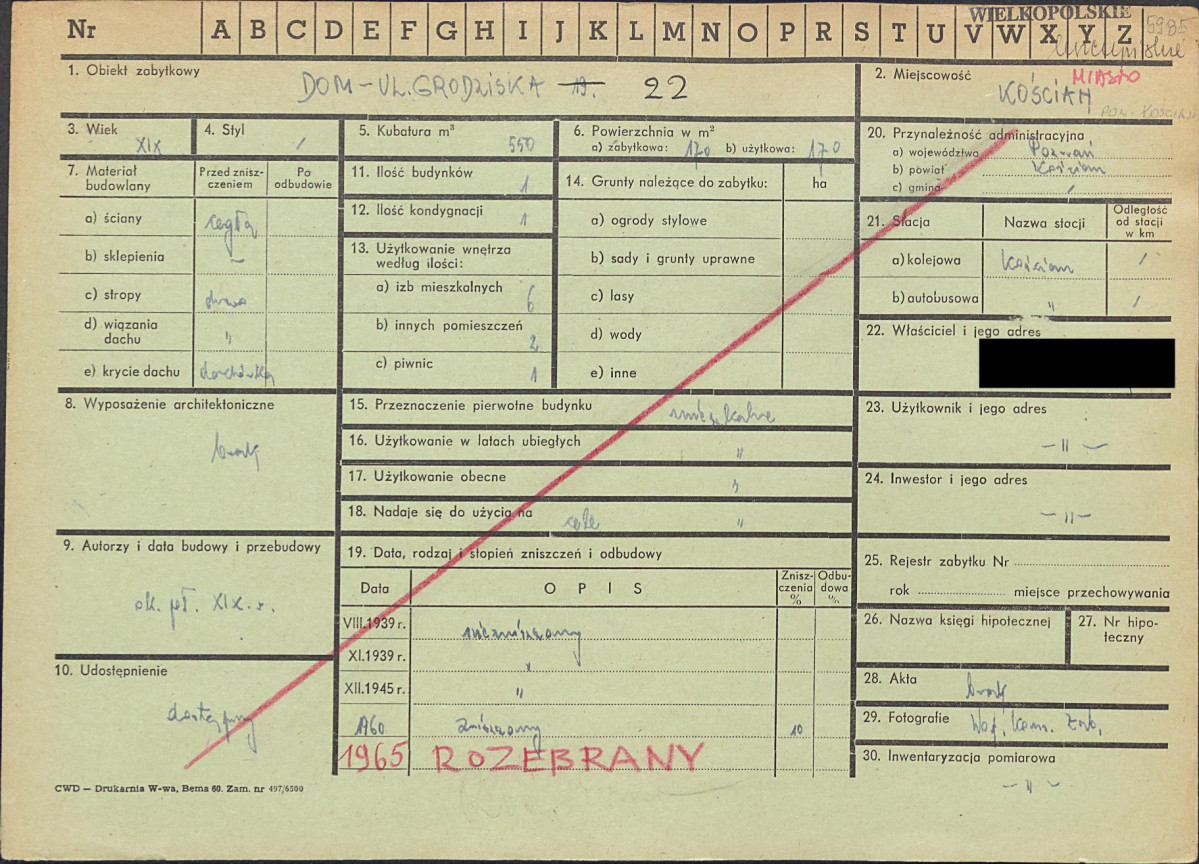 Nr A B C D E F G H I J K L M N O P R S T U V W X Y Z
WIELKOPOLSKIE
5985
1. Obiekt zabytkowy
DOM - UL. GRODZISKA 19. 22
2. Miejscowość
MIASTO
KOŚCIAN
POW. KOŚCIAN
3. Wiek
XIX
4. Styl
/
5. Kubatura m³
550
6. Powierzchnia w m²
a) zabytkowa: 170 b) użytkowa: 170
7. Materiał budowlany
Przed zniszczeniem
Po odbudowie
a) ściany
cegła
b) sklepienia
–
c) stropy
drewno
d) wiązania dachu
"
e) krycie dachu
dachówka
8. Wyposażenie architektoniczne
brak
9. Autorzy i data budowy i przebudowy
ok. poł. XIX w.
10. Udostępnienie
dostępny
11. Ilość budynków
1
12. Ilość kondygnacji
1
13. Użytkowanie wnętrza według ilości:
a) izb mieszkalnych
6
b) innych pomieszczeń
2
c) piwnic
1
14. Grunty należące do zabytku:
ha
a) ogrody stylowe
b) sady i grunty uprawne
c) lasy
d) wody
e) inne
15. Przeznaczenie pierwotne budynku
mieszkalne
16. Użytkowanie w latach ubiegłych
"
17. Użytkowanie obecne
"
18. Nadaje się do użycia na
cele "
19. Data, rodzaj i stopień zniszczeń i odbudowy
Data
OPIS
Zniszczenia %
Odbudowa %
VIII.1939 r.
niezniszczony
XI.1939 r.
"
XII.1945 r.
"
1960
zniszczony
10
1965 ROZEBRANY
20. Przynależność administracyjna
a) województwo
Poznań
b) powiat
Kościan
c) gmina
/
21. Stacja
Nazwa stacji
Odległość od stacji w km
a) kolejowa
Kościan
/
b) autobusowa
"
/
22. Właściciel i jego adres
23. Użytkownik i jego adres
– " –
24. Inwestor i jego adres
– " –
25. Rejestr zabytku Nr
rok miejsce przechowywania
26. Nazwa księgi hipotecznej
27. Nr hipoteczny
28. Akta
brak
29. Fotografie
Woj. Kons. Zab.
30. Inwentaryzacja pomiarowa
– " –
CWD — Drukarnia W-wa, Bema 60. Zam. nr 497/6500